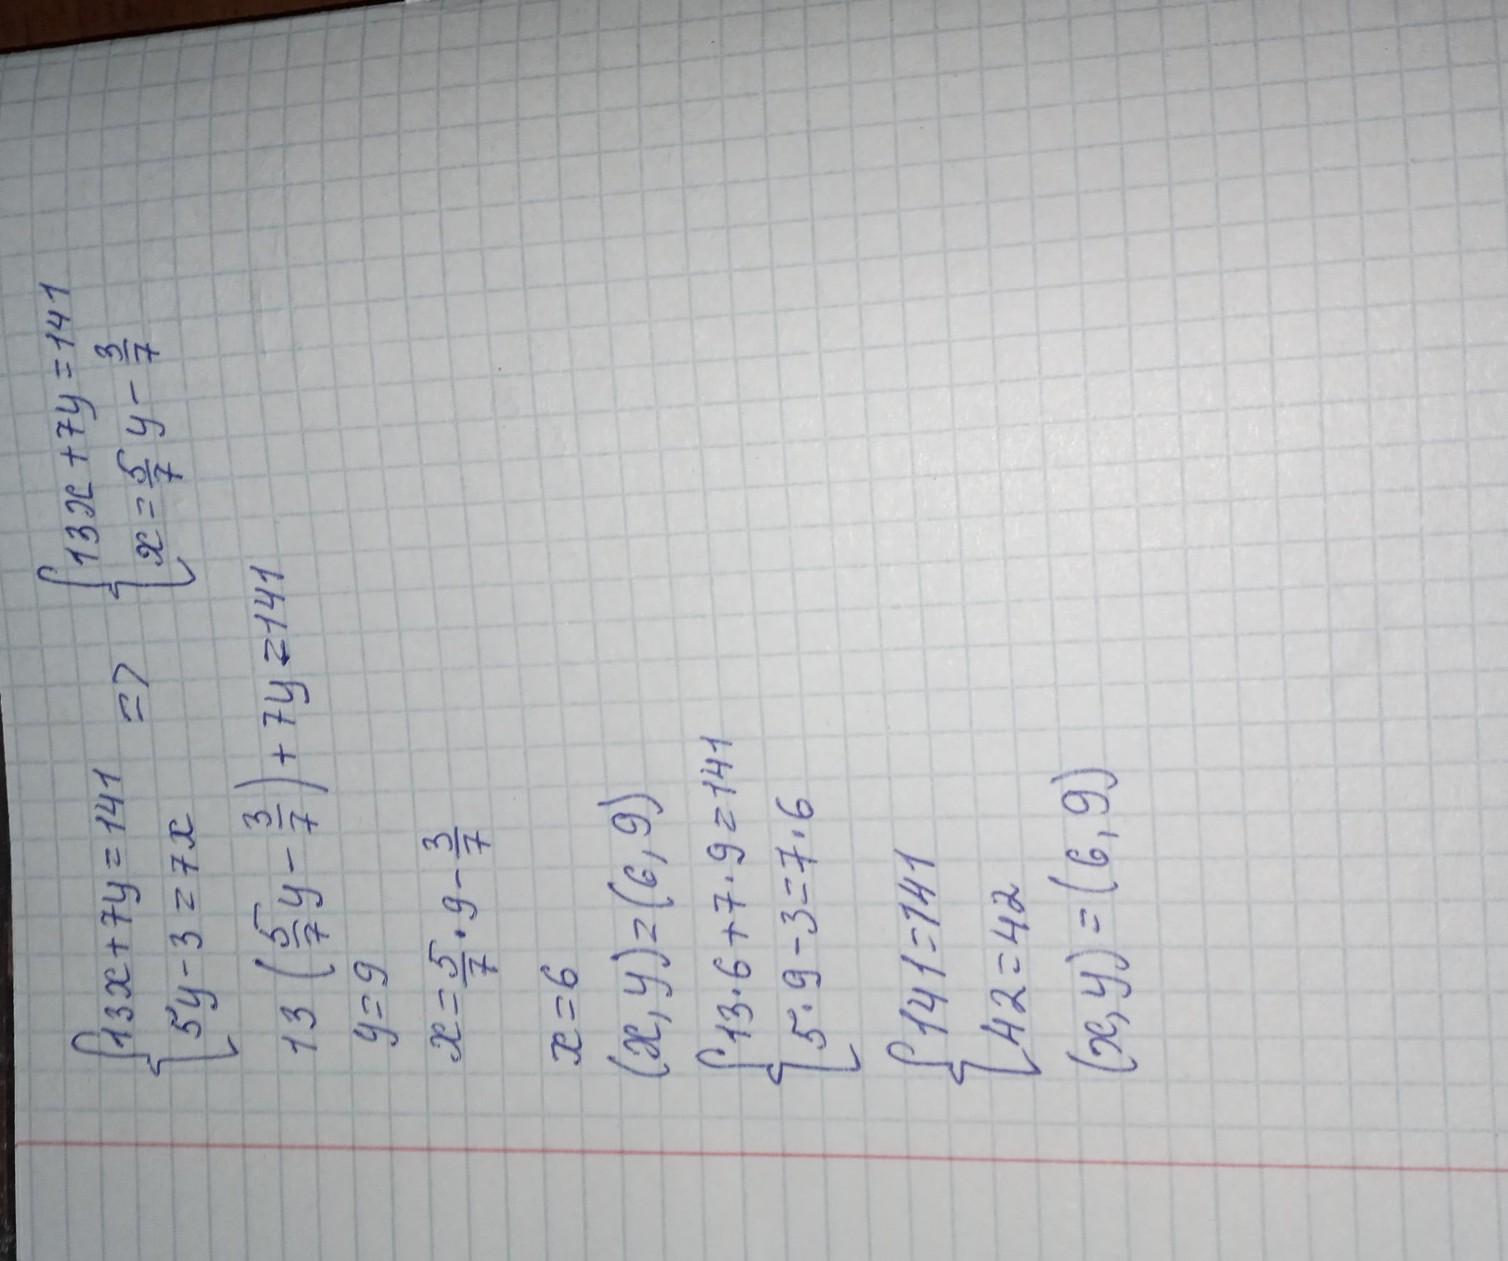 {13x+7y=141 => {13x+7y=141
{5y-3=7x {x=5/7 y-3/7
13(5/7 y-3/7)+7y=141
y=9
x=5/7·9-3/7
x=6
(x,y)=(6,9)
{13·6+7·9=141
{5·9-3=7·6
{141=141
{42=42
(x,y)=(6,9)